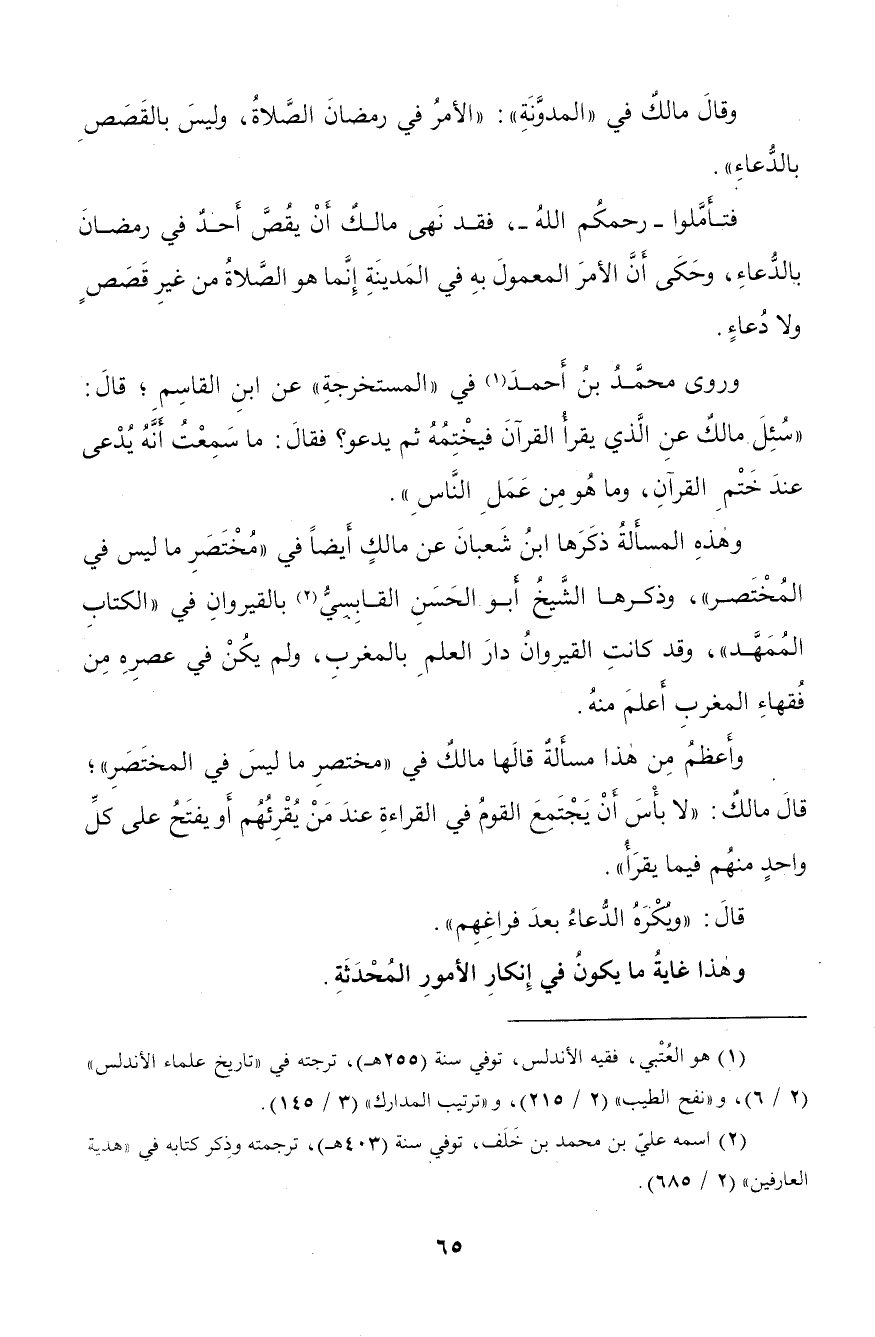 وقالَ مالكٌ في «المدوَّنَةِ»: «الأمرُ في رمضانَ الصَّلاةُ، وليسَ بالقَصَصِ
بالدُّعاءِ».
فتـأَمَّلوا ـ رحمكُم اللهُ ـ، فقـد نَهى مالـكٌ أَنْ يقُصَّ أَحـدٌ في رمضـانَ
بالدُّعاءِ، وحَكَى أَنَّ الأمرَ المعمولَ بهِ في المَدينَةِ إِنَّما هو الصَّلاةُ من غيرِ قَصَصٍ
ولا دُعاءٍ.
وروى محمَّـدُ بنُ أَحمـدَ(١) في «المستخرجةِ» عن ابنِ القاسِمِ؛ قالَ:
«سُئِلَ مالكٌ عنِ الَّذي يقرأُ القرآنَ فيخْتِمُهُ ثم يدعو؟ فقالَ: ما سَمِعْتُ أَنَّهُ يُدْعى
عندَ خَتْمِ القرآنِ، وما هُو مِن عَمَلِ النَّاسِ».
وهٰذهِ المسأَلةُ ذكَرَها ابنُ شَعبانَ عن مالكٍ أَيضاً في «مُخْتَصَرِ ما ليس في
المُخْتَصـر»، وذكـرهـا الشَّيخُ أَبـو الحَسَنِ القـابِسِيُّ(٢) بالقيروانِ في «الكتابِ
المُمَهَّـد»، وقد كانتِ القيروانُ دارَ العلمِ بالمغربِ، ولم يكُنْ في عصرِهِ مِن
فُقهاءِ المغربِ أَعلمَ منهُ.
وأَعظمُ مِن هٰذا مسأَلةٌ قالَها مالكٌ في «مختصرِ ما ليسَ في المختَصَرِ»؛
قالَ مالكٌ: «لا بأْسَ أَنْ يَجْتَمِعَ القومُ في القراءةِ عندَ مَنْ يُقْرِئُهُم أَو يفتَحُ على كلِّ
واحدٍ منهُم فيما يقرَأُ».
قالَ: «ويُكْرَهُ الدُّعاءُ بعدَ فراغِهِم».
وهٰذا غايةُ ما يكونُ في إِنكارِ الأمورِ المُحْدَثَةِ.
(١) هو العُتْبي، فقيه الأندلس، توفي سنة (٢٥٥هـ)، ترجته في «تاريخ علماء الأندلس»
(٢ / ٦)، و«نفح الطيب» (٢ / ٢١٥)، و«ترتيب المدارك» (٣ / ١٤٥).
(٢) اسمه عليّ بن محمد بن خَلَف، توفي سنة (٤٠٣هـ)، ترجمته وذِكر كتابه في «هدية
العارفين» (٢ / ٦٨٥).
٦٥